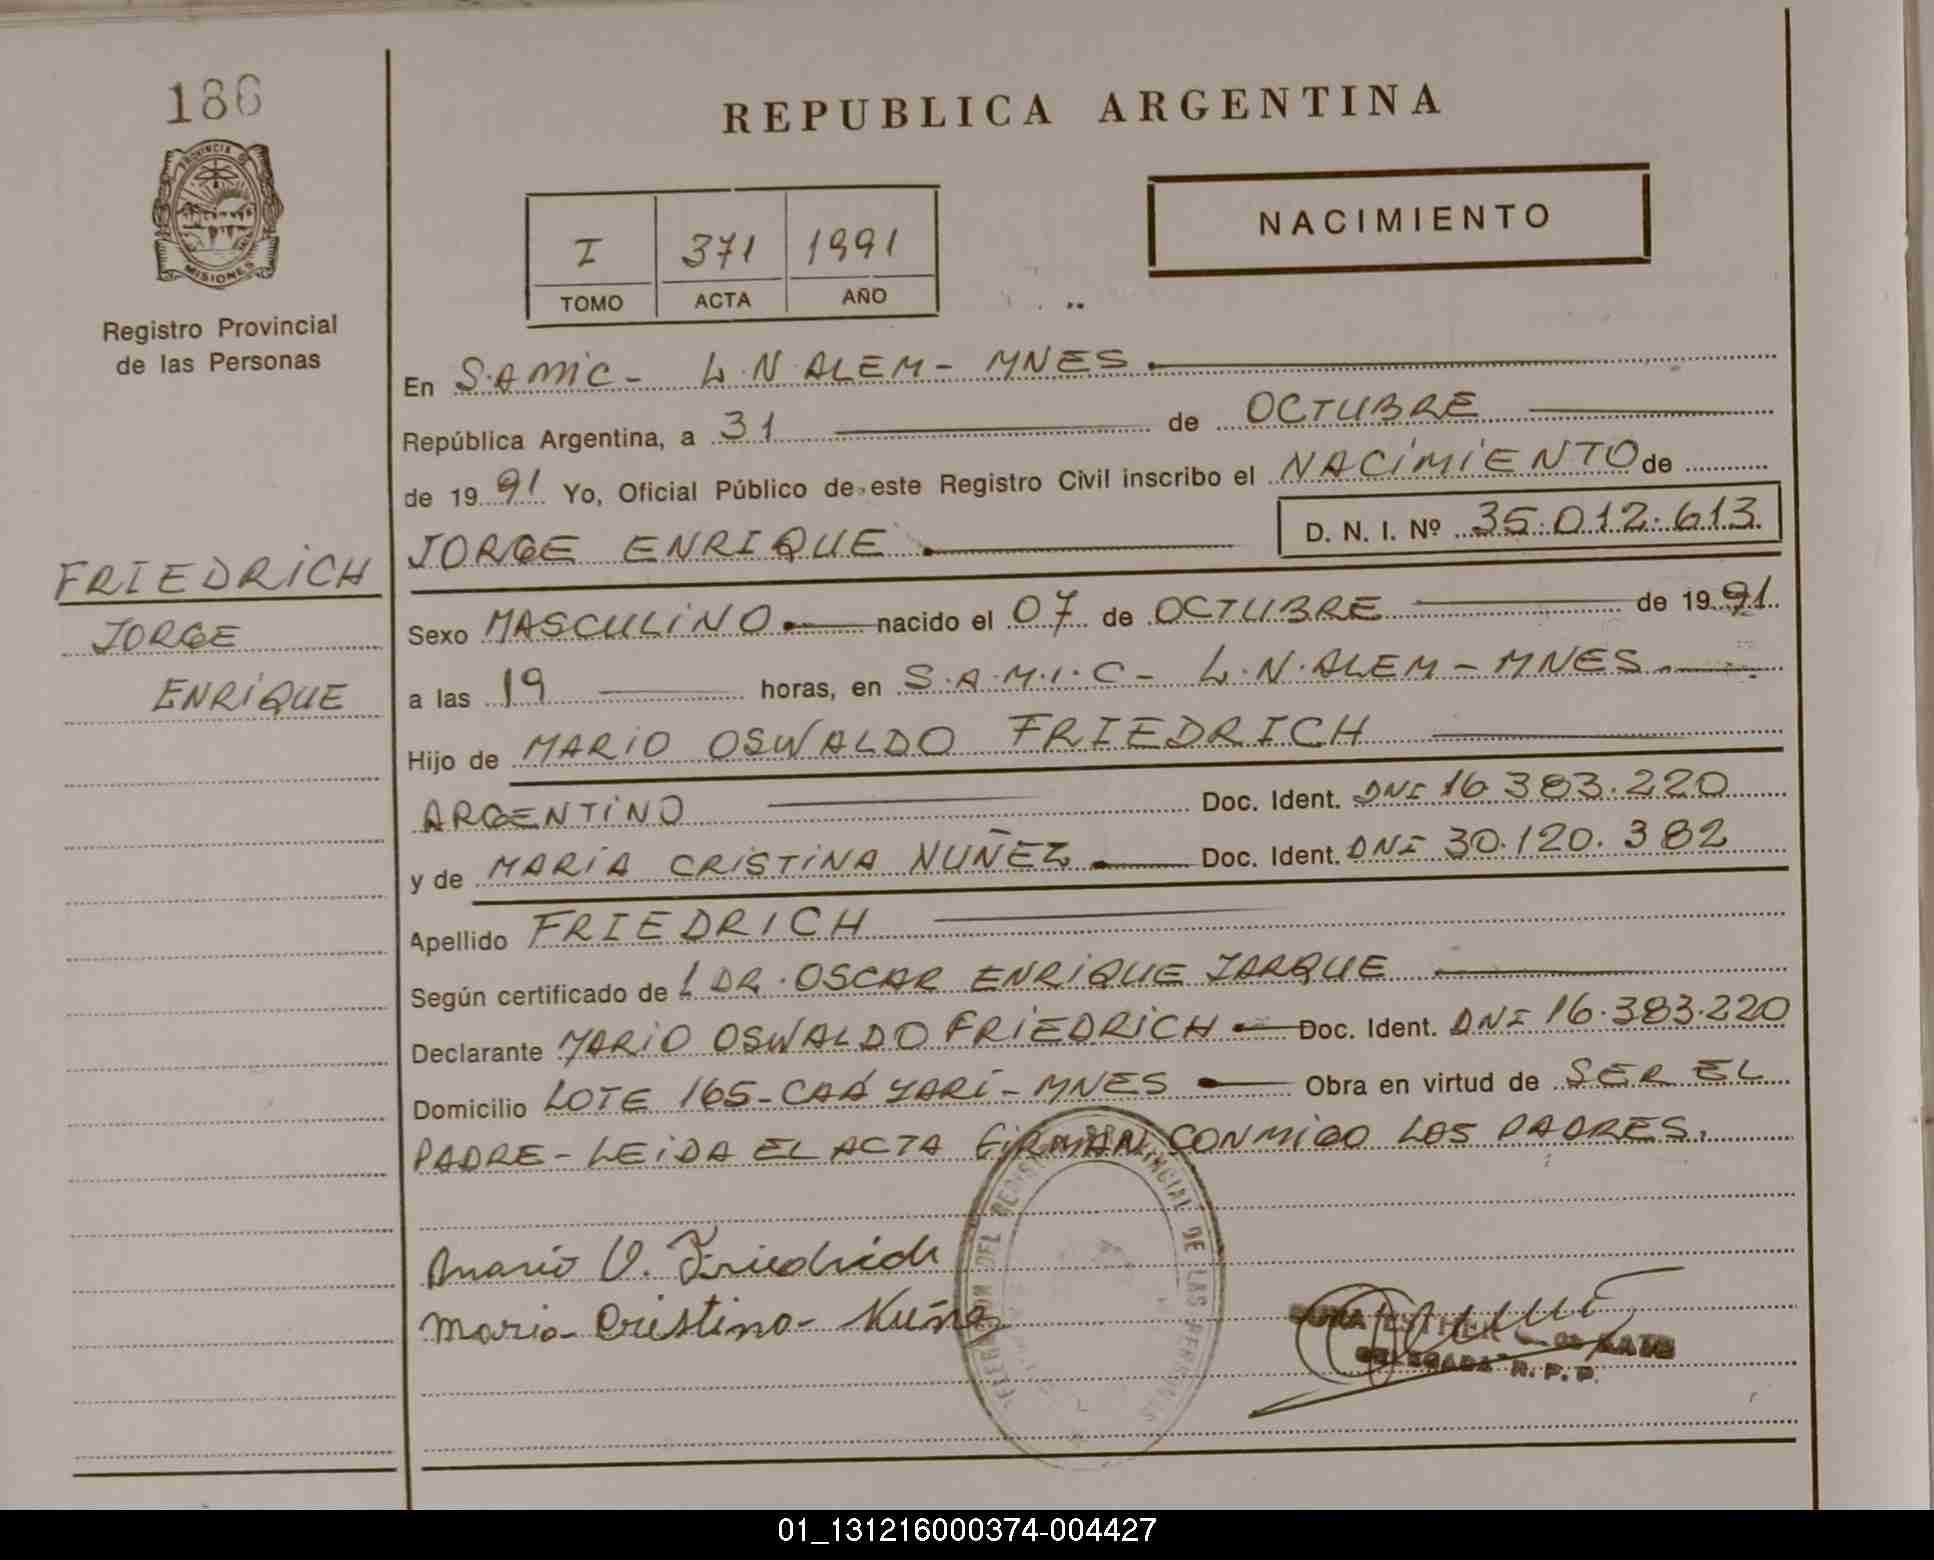 186
PROVINCIA DE
MISIONES
Registro Provincial
de las Personas
FRIEDRICH
JORGE
ENRIQUE
REPUBLICA ARGENTINA
I 371 1991
TOMO ACTA AÑO
NACIMIENTO
En S.AMIC - L.N ALEM - MNES
República Argentina, a 31 de OCTUBRE
de 1991 Yo, Oficial Público de este Registro Civil inscribo el NACIMIENTO de
JORGE ENRIQUE D. N. I. Nº 35.012.613
Sexo MASCULINO nacido el 07 de OCTUBRE de 1991
a las 19 horas, en S.A.M.I.C - L.N.ALEM - MNES
Hijo de MARIO OSWALDO FRIEDRICH
ARGENTINO Doc. Ident. DNI 16.383.220
y de MARIA CRISTINA NUÑEZ Doc. Ident. DNI 30.120.382
Apellido FRIEDRICH
Según certificado de DR. OSCAR ENRIQUE JARQUE
Declarante MARIO OSWALDO FRIEDRICH Doc. Ident. DNI 16.383.220
Domicilio LOTE 165 - CAÁ YARÍ - MNES Obra en virtud de SER EL
PADRE - LEIDA EL ACTA FIRMAN CONMIGO LOS PADRES.
DEL REGISTRO PROVINCIAL DE LAS PERSONAS
Mario O. Friedrich
Maria Cristina Nuñez
ESTHER
DELEGADA R. P. P.
01_131216000374-004427